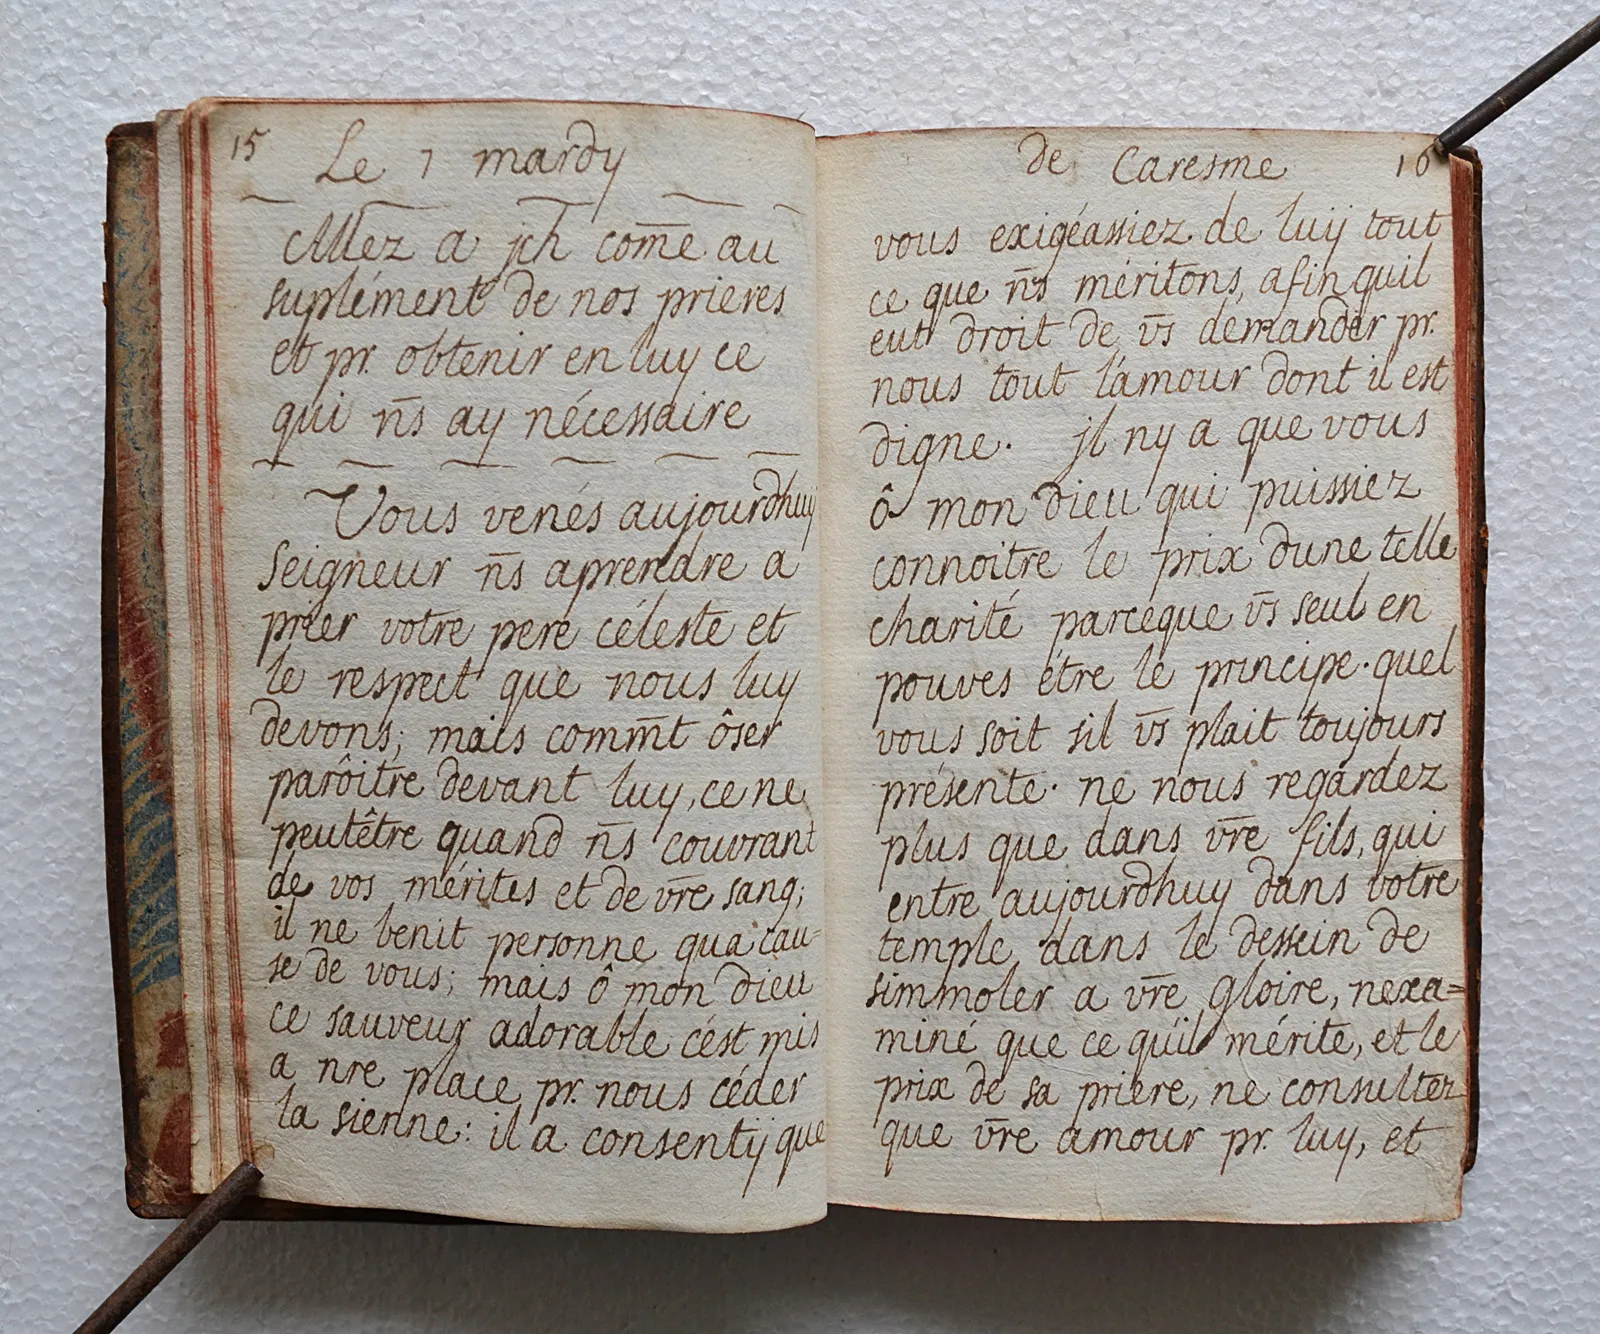 15 Le 1 mardy
Allez a jch com̄e au
suplément de nos prieres
et pr. obtenir en luy ce
qui n̄s ay nécessaire
Vous venés aujourdhuy
Seigneur n̄s aprendre a
prier votre pere céleste et
le respect que nous luy
devons; mais comm̄t ôser
parôitre devant luy, ce ne
peutêtre quand n̄s couvrant
de vos mérites et de vr̄e sang;
il ne benit personne qua cau=
se de vous; mais ô mon dieu
ce sauveur adorable cést mis
a nre place pr. nous céder
la sienne: il a consenty que
de Caresme 16
vous exigéassiez de luy tout
ce que n̄s méritons, afin quil
eut droit de v̄s demander pr.
nous tout l'amour dont il est
digne. jl ny a que vous
ô mon dieu qui puissiez
connoitre le prix dune telle
charité parceque v̄s seul en
pouves étre le principe. quel
vous soit sil v̄s plait toujours
présente. ne nous regardez
plus que dans vr̄e fils, qui
entre aujourdhuy dans votre
temple dans le dessein de
simmoler a vr̄e gloire, nexa=
miné que ce qu'il mérite, et le
prix de sa priere, ne consultez
que vr̄e amour pr. luy, et